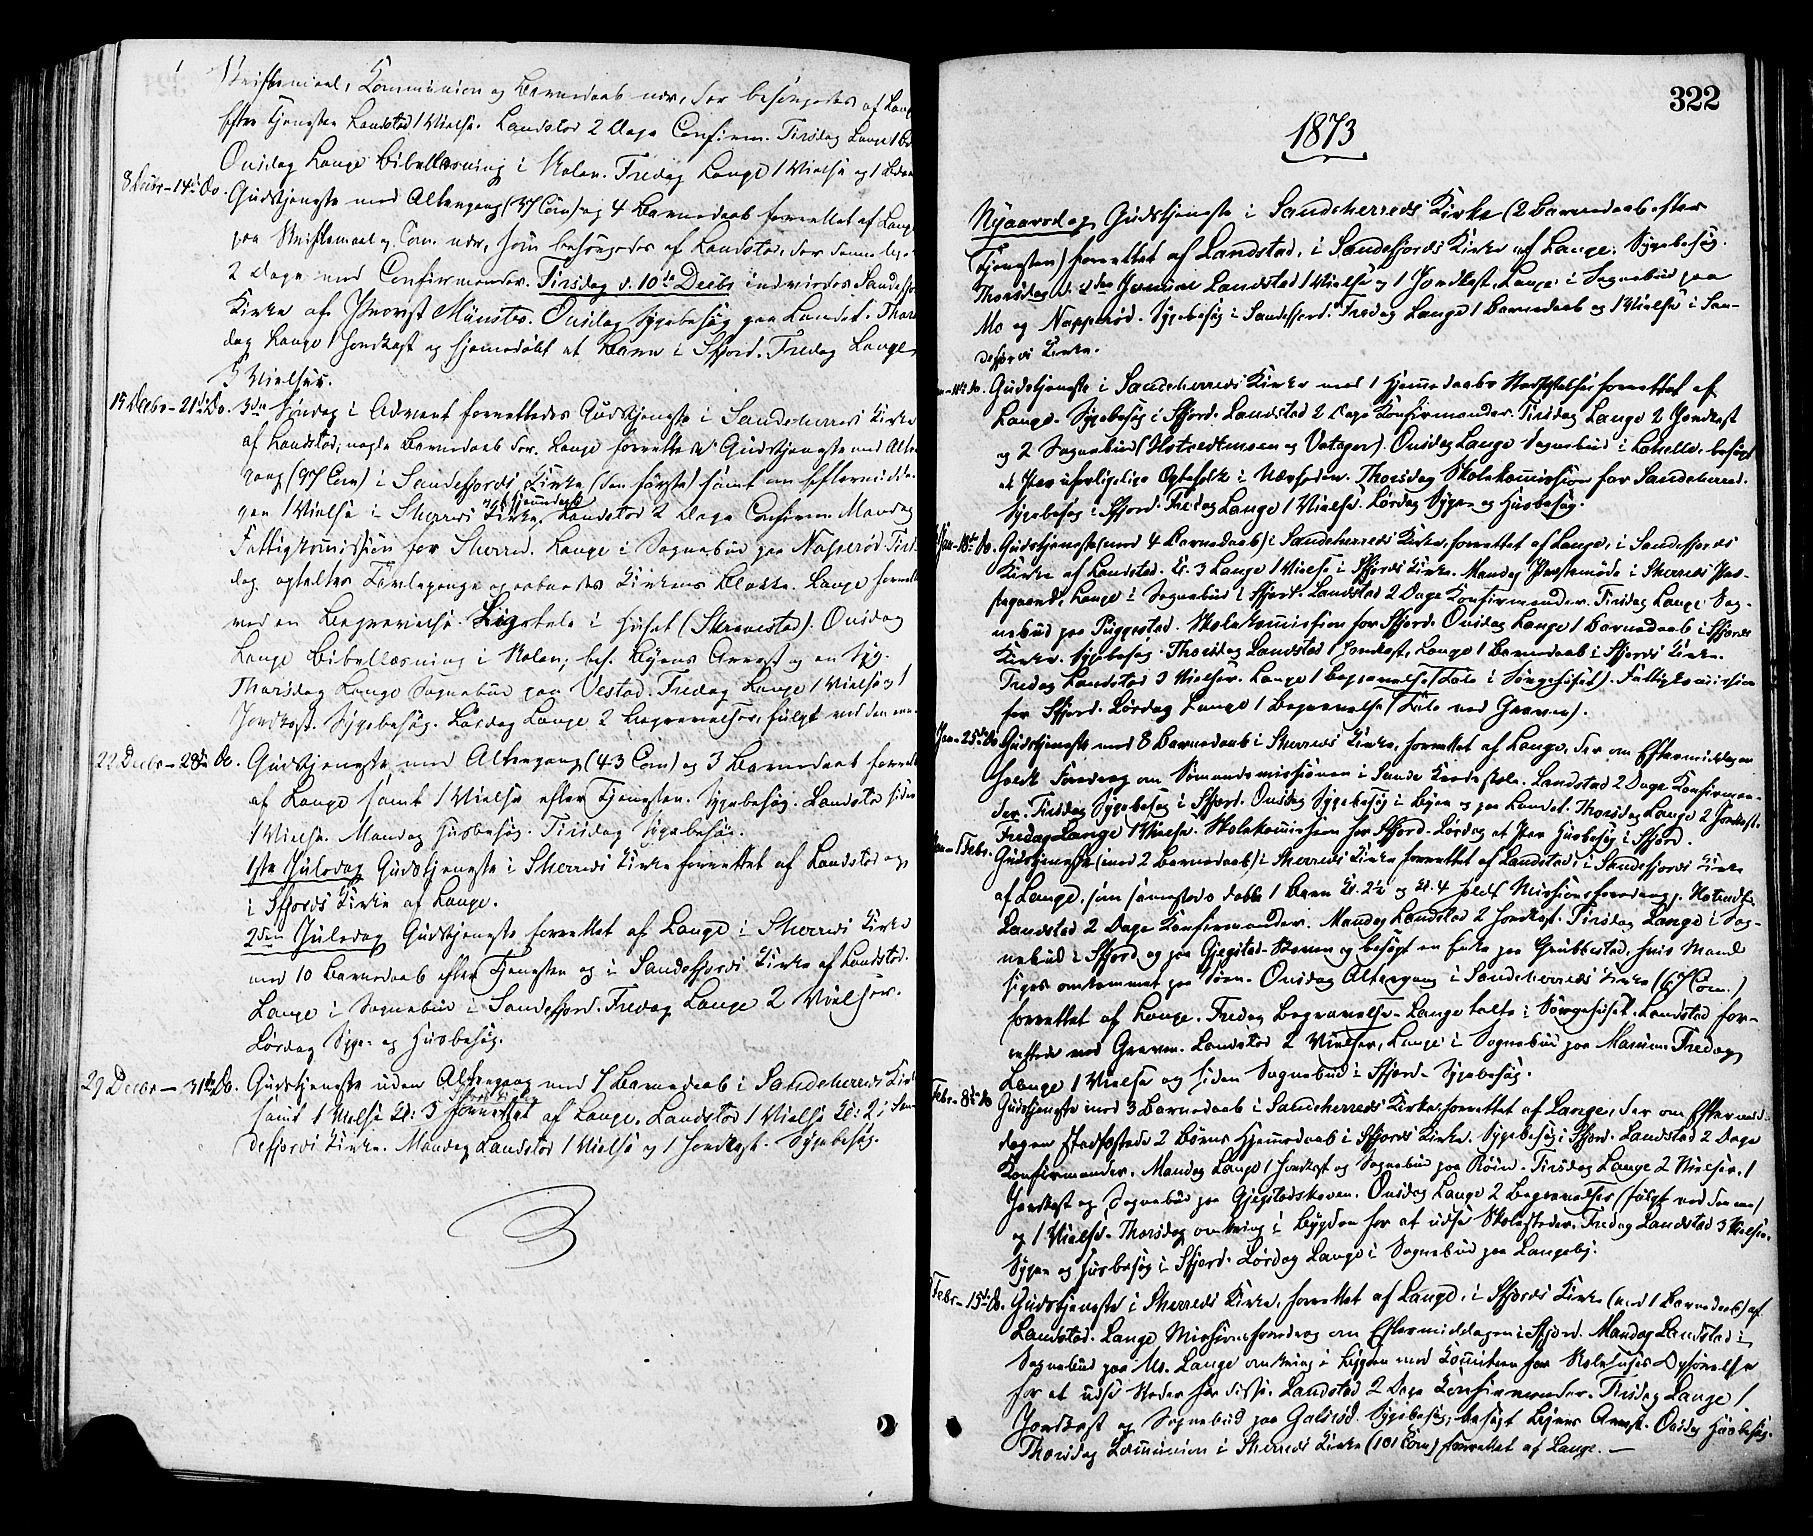 Skriftemaal, Kommunion og Barnedaab var, der besørgedes af Lange
Efter Tjenesten Landstad 1 Vielse. Landstad 2 Dage Confirm. Tirsdag Lange 1
Onsdag Lange Bibellæsning i Skolen. Fredag Lange 1 Vielse og 1
8 Decbr – 14de Do. Gudstjeneste med Altergang (37 Com) og 4 Barnedaab forrettet af Lange
paa Skriftemaal og Com. nær, som besørgedes af Landstad, der
2 Dage med Confirmander. Tirsdag d. 10de Decbr indviedes Sandefjords
Kirke af Provst Münster. Onsdag Sygebesøg paa Landet. Thors-
dag Lange 1 Jordkast og hjemmedøbt et Barn i Sfjord. Fredag Lange
3 Vielser.
15 Decbr – 21de Do. 3die Søndag i Advent forrettedes Gudstjeneste i Sandeherreds Kirke
af Landstad, nogle Barnedaab der. Lange forrettede Gudstjeneste med Alter-
gang (97 Com) i Sandefjords Kirke (den første) samt om Eftermidda-
gen 1 Vielse i Sherreds Kirke og 1 Hjemmedaab. Landstad 2 Dage Confirm. Mandag
Fattigkommission for Sherred. Lange i Sognebud paa Napperød. Tirs-
dag optaltes Tavlepenge Kirkens Blokke. Lange forrettede
ved en Begravelse Ligtale i Huset (Skravestad). Onsdag
Lange Bibellæsning i Skolen, bes. Byens Arrest og en Syg.
Thorsdag Lange Sognebud paa Vestad. Fredag Lange 1 Vielse og 1
Jordkast. Sygebesøg. Lørdag Lange 2 Begravelser, fulgt ved den ene.
22 Decbr – 28de Do. Gudstjeneste med Altergang (43 Com) og 3 Barnedaab forrettet
af Lange samt 1 Vielse efter Tjenesten. Sygebesøg. Landstad siden
1 Vielse. Mandag Husbesøg. Tirsdag Sygebesøg.
1ste Juledag Gudstjeneste i Sherreds Kirke forrettet af Landstad og
i Sfjords Kirke af Lange.
2den Juledag Gudstjeneste forrettet af Lange i Sherreds Kirke
med 10 Barnedaab efter Tjenesten og i Sandefjords Kirke af Landstad.
Lange i Sognebud i Sandefjord. Fredag Lange 2 Vielser.
Lørdag Syge- og Husbesøg.
29 Decbr – 31te Do. Gudstjeneste uden Altergang med 7 Barnedaab i Sandeherreds Kirke
samt 1 Vielse Kl: 3 forrettet af Lange. Landstad 1 Vielse Kl: 2 i San-
defjords Kirke. Mandag Landstad 1 Vielse og 1 Jordkast. Sygebesøg.
322
1873
Nyaarsdag Gudstjeneste i Sandeherreds Kirke (2 Barnedaab efter
Tjenesten) forrettet af Landstad, i Sandefjords Kirke af Lange. Sygebesøg.
Thorsdag d. 2den Januar Landstad 1 Vielse og 1 Jordkast, Lange i Sognebud paa
Mo og Napperød. Sygebesøg i Sandefjord. Fredag Lange 1 Barnedaab og 1 Vielse i San-
defjords Kirke.
11te Do. Gudstjeneste i Sandeherreds Kirke med 1 Hjemmedaabs Stadfæstelse forrettet af
Lange. Sygebesøg i Sfjord. Landstad 2 Dage Konfirmander. Tirsdag Lange 2 Jordkast
og 2 Sognebud (Hotvedtmoen og Vatager). Onsdag Lange Sognebud i besøgt
et Par uferligelige Ægtefolk i Nærheden. Thorsdag Skolekommission for Sandeherred.
Sygebesøg i Sfjord. Fredag Lange 1 Vielse. Lørdag Syge- og Husbesøg.
Jan – 18de Do. Gudstjeneste (med 4 Barnedaab) i Sandeherreds Kirke forrettet af Lange, i Sandefjords
Kirke af Landstad. Kl. 3 Lange 1 Vielse i Sfjords Kirke. Mandag Præstemøde i Sherreds Præ-
stegaard, Lange i Sognebud i Sfjord. Landstad 2 Dage Konfirmander. Tirsdag Lange Sog-
nebud paa Puggestad. Skolekommission for Sfjord. Onsdag Lange 1 Barnedaab i Sfjords
Kirke. Sygebesøg. Thorsdag Landstad 1 Jordkast, Lange 1 Barnedaab i Sfjords Kirke.
Fredag Landstad 3 Vielser. Lange 1 Begravelse (Tale i Sørgehuset). Fattigkommission
for Sfjord. Lørdag Lange 1 Begravelse (Tale ved Graven).
Jan – 25de Do. Gudstjeneste med 8 Barnedaab i Sherreds Kirke, forrettet af Lange, der om Eftermiddagen
holdt Foredrag om Sømandsmissionen i Sande Kredsskole. Landstad 2 Dage Konfirman-
der. Tirsdag Sygebesøg i Sfjord. Onsdag Sygebesøg i Byen og paa Landet. Thorsdag Lange 2 Jordkast.
Fredag Lange 1 Vielse. Skolekommission for Sfjord. Lørdag et Par Husbesøg i Sfjord.
1 Febr. Gudstjeneste (med 2 Barnedaab) i Sherreds Kirke forrettet af Landstad, i Sandefjords Kirke
af Lange, som sammesteds døbte 1 Barn Kl. 2½ og Kl. 4 holdt Missionsforedrag p. Hotvedt.
Landstad 2 Dage Konfirmander. Mandag Landstad 2 Jordkast. Tirsdag Lange i Sog-
nebud i Sfjord og paa Gjegstad-Skoven og besøgt en Enke paa Grubbestad, hvis Mand
siges omkommet paa Søen. Onsdag Altergang i Sandeherreds Kirke (67 Com.)
forrettet af Lange. Fredag Begravelse – Lange talte i Sørgehuset. Landstad for-
rettede ved Graven. Landstad 2 Vielser, Lange i Sognebud paa Marum. Fredag
Lange 1 Vielse og siden Sognebud i Sfjord. Sygebesøg.
Febr – 8de Do Gudstjeneste med 3 Barnedaab i Sandeherreds Kirke, forrettet af Lange, der om Eftermid-
dagen stadfæstede 2 Børns Hjemmedaab i Sfjords Kirke. Sygebesøg i Sfjord. Landstad 2 Dage
Konfirmander. Mandag Lange 1 Jordkast og Sognebud paa Röin. Tirsdag Lange 2 Vielser, 1
Jordkast og Sognebud paa Gjegstadskoven. Onsdag Lange 2 Begravelser (fulgt ved den ene)
og 1 Vielse. Thorsdag omkring i Bygden for at udse Skolesteder. Fredag Landstad 3 Vielser.
Syge- og Husbesøg i Sfjord. Lørdag Lange i Sognebud paa Langeby.
Febr – 15de Do. Gudstjeneste i Sherreds Kirke, forrettet af Lange, i Sfjords Kirke (med 1 Barnedaab) af
Landstad. Lange Missionsforedrag om Eftermiddagen i Sfjord. Mandag Landstad i
Sognebud paa Mo. Lange omkring i Bygden med Komiteen for Skolehuses Opførelse
for at udse Steder for disse. Landstad 2 Dage Konfirmander. Tirsdag Lange 1
Jordkast og Sognebud paa Galsrød. Sygebesøg, besøgt Byens Arrest. Onsdag Husbesøg.
Thorsdag Kommunion i Sherreds Kirke (101 Com) forrettet af Lange. –